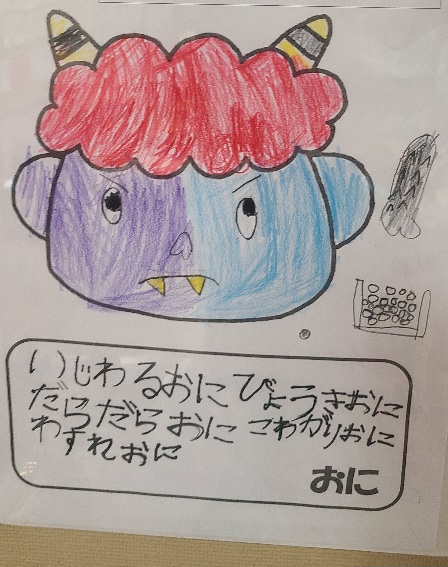 いじわるおに びょうきおに
だらだらおに こわがりおに
わすれおに
おに